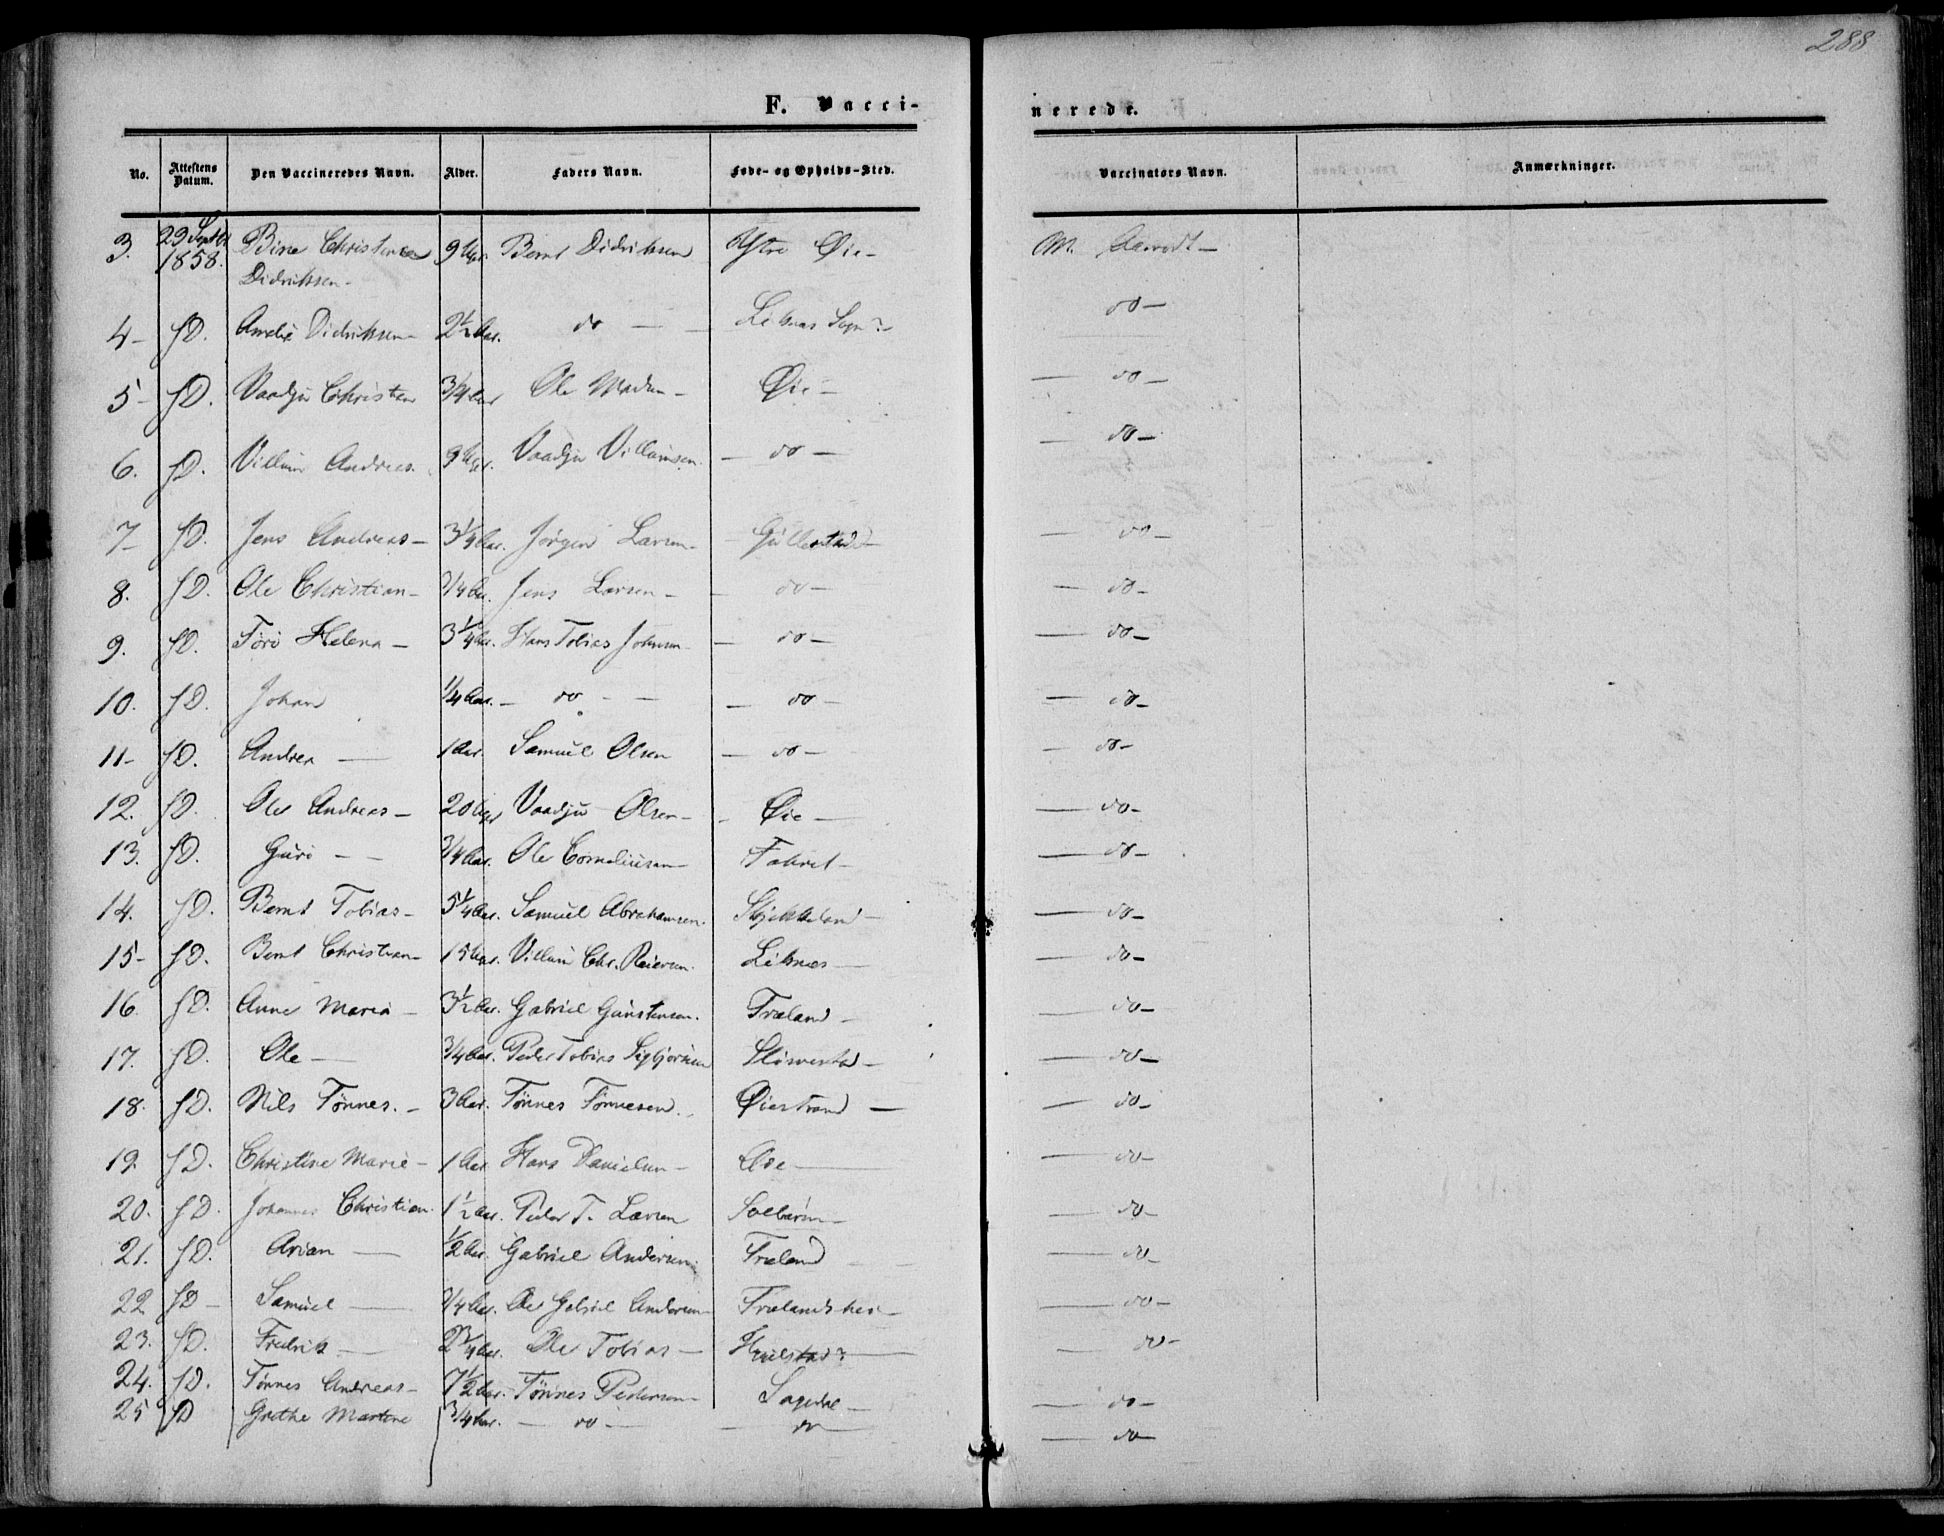 288
F. Vacci-
nerede.
No. Attestens Datum. Den Vaccineredes Navn. Alder. Faders Navn. Føde- og Opholds-Sted. Vaccinators Navn. Anmærkninger.
3. 29 Septbr 1858. Didriksen - Bernt Didriksen Ytre Øie - M.
4 - s.D. Didriksen - 2½ Aar. do - Sogn do -
5 - s.D. Vaadju Christian Ole Øie - do -
6. s.D. Villum Andreas. Vaadju Villumsen. - do - do -
7 - s.D. Jens Andreas - 3¼ Aar. Jørgen Larsen - Gullestad - do -
8. s.D. Ole Christian - Jens Larsen - do - do -
9. s.D. Helena - 3¼ Aar. Hans Tobias Johnsen - do - do -
10. s.D. Johan ¼ Aar. - do - - do - do -
11 - s.D. Andrea - 1 Aar. Samuel Olsen - do - do -
12. s.D. Ole Andreas - 20 Vaadju Olsen - Øie - do -
13. s.D. Guro - ¾ Aar. Ole Corneliusen - do -
14. s.D. Bernt Tobias - 5¼ Aar. Samuel Abrahamsen. do -
15 - s.D. Bernt Christian - 15 Villum Chr. Reiersen. do -
16. s.D. Anne Maria - 3½ Aar. Gabriel Gunstensen. Træland - do -
17. s.D. Ole - ¾ Aar. Peder Tobias Sigbjørnsen do -
18. s.D. Nils Tønnes. - 3 Aar. Tønnes Tønnesen. Øiestrand - do -
19. s.D. Christine Marie - 1 Aar Hans Danielsen - Øie - do -
20. s.D. Johannes Christian. 1½ Aar. Peder T. Larsen do -
21. s.D. Arian - ½ Aar. Gabriel Andersen. Træland do -
22 s.D - Samuel - Ole Gabriel Andersen - do -
23. s.D. Fredrik - 2¾ Aar. Ole Tobias - do -
24. s.D. Tønnes Andreas - 7½ Aar. Tønnes Pedersen - Sagedal - do -
25 s.D Grethe Martine ¾ Aar. - do - - do do -